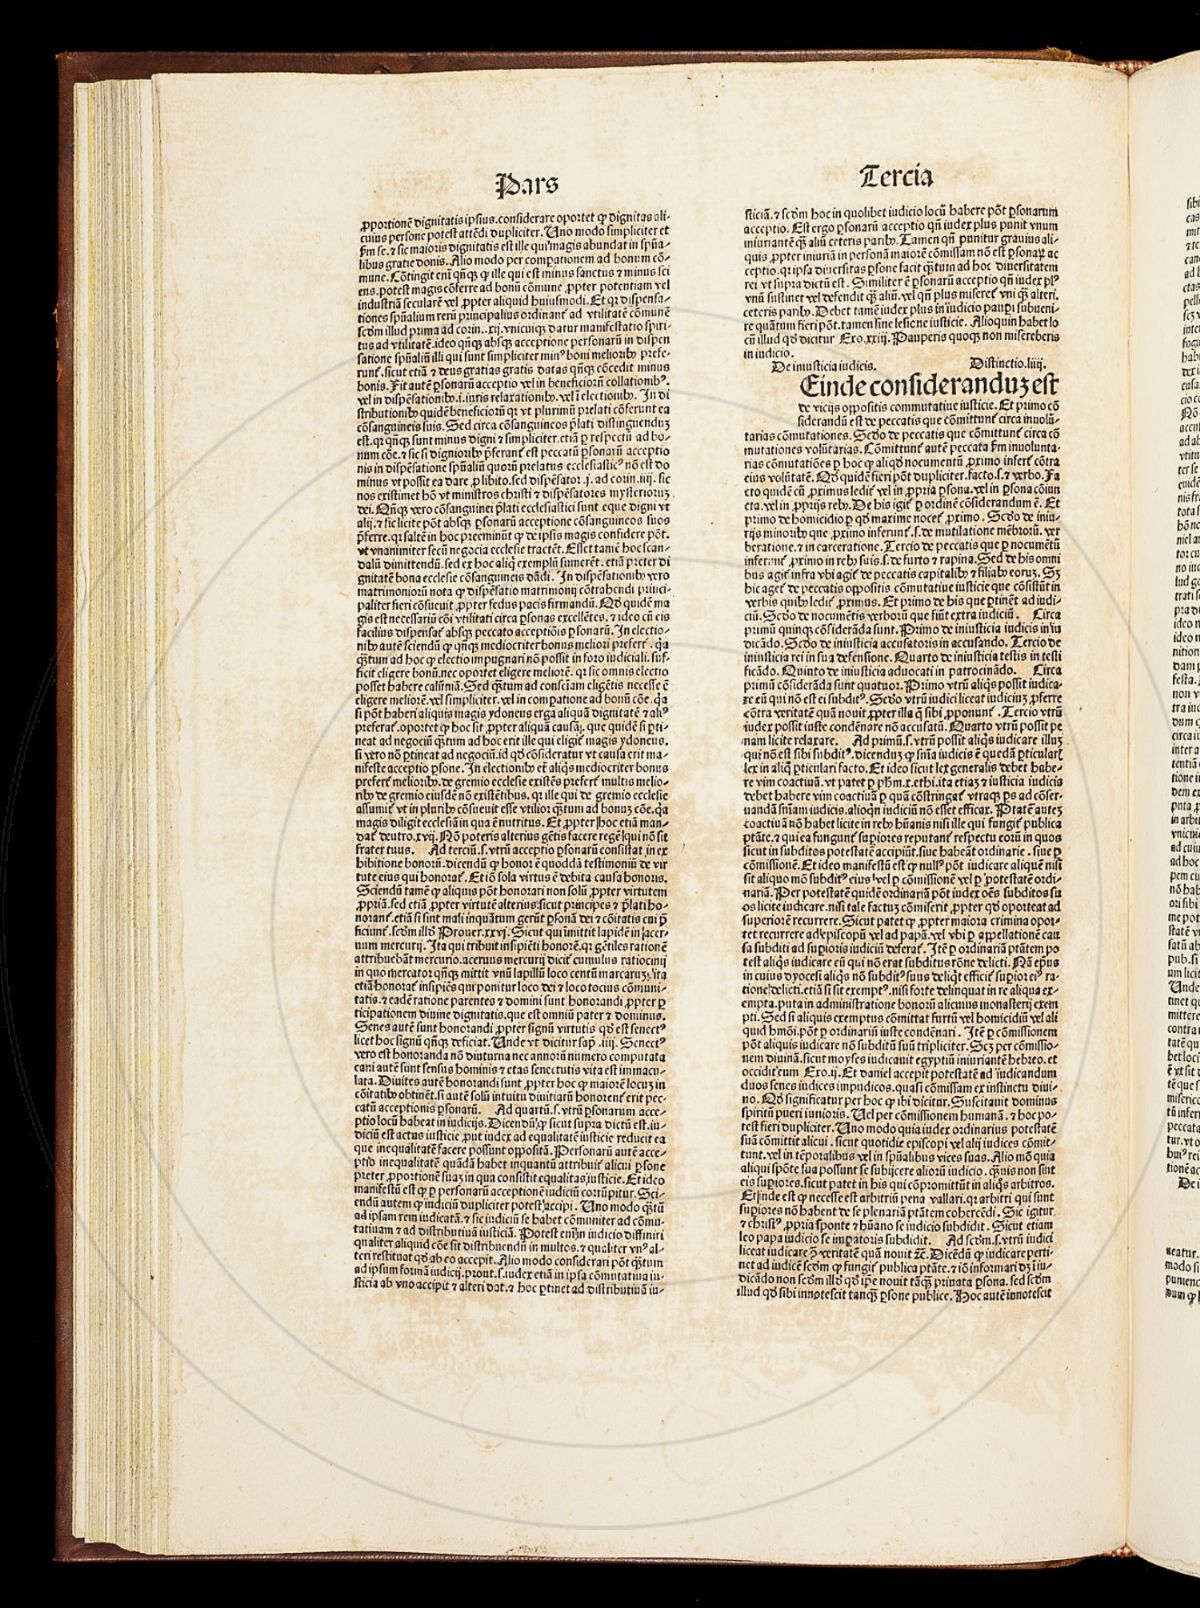 Pars
ꝓportionē dignitatis ipsius.considerare oportet ꝙ dignitas ali-
cuius persone potest attēdi dupliciter. Uno modo simpliciter et
ẜm se.⁊ sic maioris dignitatis est ille qui magis abundat in spūa-
libus gratie donis. Alio modo per comꝑationem ad bonum cō-
mune. Cōtingit enī qñqꝫ ꝙ ille qui est minus sanctus ⁊ minus sci
ens.potest magis cōferre ad bonū cōmune ꝓpter potentiam vel
industriā secularē vel ꝓpter aliquid huiusmodi. Et qꝛ dispensa-
tiones spūalium rerū principalius ordinant᷑ ad vtilitatē cōmunē
scdꝫm illud prima ad corin..xij.vnicuiqꝫ datur manifestatio spiri-
tus ad vtilitatē.ideo qñqꝫ absqꝫ acceptione personarū in dispen
satione spūaliū illi qui sunt simpliciter minꝰ boni meliorib᷒ prefe-
runt᷑.sicut etiā ⁊ deus gratias gratis datas qñqꝫ cōcedit minus
bonis. Fit autē ꝑsonarū acceptio vel in beneficiorū collationib᷒.
vel in dispēsationib᷒.i.iuris relaxationib᷒.vel ī electionib᷒. In di
stributionib᷒ quidē beneficiorū qꝛ vt plurimū prelati cōferunt ea
cōsanguineis suis. Sed circa cōsanguineos p̄lati distinguenduꝫ
est.qꝛ qñqꝫ sunt minus digni ⁊ simpliciter.etiā ꝑ respectū ad bo-
num cōe.⁊ sic si digniorib᷒ p̄ferant᷑ est peccatū ꝑsonarū acceptio
nis in dispēsatione spūaliū quorū prelatus ecclesiasticꝰ nō est do
minus vt possit ea dare ꝓ libito.sed dispēsator.j. ad corin.iiij. sic
nos existimet hō vt ministros christi ⁊ dispēsatores mysterioruꝫ
dei. Qñqꝫ vero cōsanguinei p̄lati ecclesiastici sunt eque digni vt
alij.⁊ sic licite pōt absqꝫ ꝑsonarū acceptione cōsanguineos suos
p̄ferre.qꝛ saltē in hoc preeminūt ꝙ de ipsis magis confidere pōt.
vt vnanimiter secū negocia ecclesie tractēt. Esset tamē hoc scan-
dalū dimittendū.sed ex hoc aliqͥ exemplū sumerēt. etiā preter di
gnitatē bona ecclesie cōsanguineis dādi. In dispēsationib᷒ vero
matrimoniorū nota ꝙ dispēsatio matrimonij cōtrahendi princi-
paliter fieri cōsueuit ꝓpter fedus pacis firmandū. Qd̓ quidē ma
gis est necessariū cōi vtilitati circa ꝑsonas excellētes. ⁊ ideo cū eis
facilius dispensat᷑ absqꝫ peccato acceptiōis ꝑsonarū. In electio-
nib᷒ autē sciendū ꝙ qñqꝫ mediocriter bonus meliori prefert᷑. q̄a
q̄ꝫtum ad hoc ꝙ electio impugnari nō possit in foro iudiciali.suf-
ficit eligere bonū.nec oportet eligere meliorē. qꝛ sic omnis electio
posset habere calūniā. Sed q̄ꝫtum ad consciam eligētis necesse ē
eligere meliorē.vel simpliciter.vel in comꝑatione ad bonū cōe. q̄a
si pōt haberi aliquis magis ydoneus erga aliquā dignitatē ⁊ aliꝰ
preferat᷑.oportet ꝙ hoc sit ꝓpter aliquā causaꝫ. que quidē si ꝑti-
neat ad negociū q̄ꝫtum ad hoc erit ille qui eligit᷑ magis ydoneus.
si vero nō ꝑtineat ad negociū.id qd̓ cōsideratur vt causa erit ma-
nifeste acceptio ꝑsone. In electionib᷒ em̄ aliqͥs mediocriter bonus
prefert᷑ meliorib᷒.de gremio ecclesie existēs prefert᷑ multis melio-
rib᷒ de gremio eiusdē nō existētibus. qꝛ ille qui de gremio ecclesie
assumit᷑ vt in plurib᷒ cōsueuit esse vtilior q̄ꝫtum ad bonuꝫ cōe.q̄a
magis diligit ecclesiā in qua ē nutritus. Et ꝓpter hoc etiā man-
dat᷑ deutro.xvij. Nō poteris alterius gētis facere regē qui nō sit
frater tuus. Ad terciū.s.vtrū acceptio ꝑsonarū consistat in ex
hibitione honorū.dicendū ꝙ honor ē quoddā testimoniū de vir
tute eius qui honorat᷑. Et iō sola virtus ē debita causa honoris.
Sciendū tamē ꝙ aliquis pōt honorari non solū ꝓpter virtutem
ꝓpriā.sed etiā ꝓpter virtutē alterius.sicut principes ⁊ p̄lati ho-
norant᷑.etiā si sint mali inquātum gerūt ꝑsonā dei ⁊ cōitatis cui p̄
ficiunt᷑.scdꝫm illd̓ Prouer.xxvj. Sicut qui īmittit lapidē in acer-
uum mercurij. Ita qui tribuit insipiēti honorē.qꝛ gētiles rationē
attribuebāt mercurio.aceruus mercurij dicit᷑ cumulus ratiocinij
in quo mercator qñqꝫ mittit vnū lapillū loco centū marcaruꝫ.ita
etiā honorat᷑ insipiēs qui ponitur loco dei ⁊ loco tocius cōmuni-
tatis.⁊ eadē ratione parentes ⁊ domini sunt honorandi ꝓpter ꝑ
ticipationem diuine dignitatis.que est omniū pater ⁊ dominus.
Senes autē sunt honorandi ꝓpter signū virtutis qd̓ est senectꝰ
licet hoc signū qñqꝫ deficiat. Unde vt dicitur sap̄ .iiij. Senectꝰ
vero est honoranda nō diuturna nec annorū numero computata
cani autē sunt sensus hominis ⁊ etas senectutis vita est immacu-
lata. Diuites autē honorandi sunt ꝓpter hoc ꝙ maiorē locuꝫ in
cōitatib᷒ obtinēt.si autē solū intuitu diuitiarū honorent᷑ erit pec-
catū acceptionis ꝑsonarū. Ad quartū.s.vtrū ꝑsonarum acce-
ptio locū habeat in iudicijs. Dicendū ꝙ sicut supra dictū est.iu-
diciū est actus iusticie ꝓut iudex ad equalitatē iusticie reducit ea
que inequalitatē facere possunt oppositā. Personarū autē acce-
ptio inequalitatē quādā habet inquantū attribuit᷑ alicui ꝑsone
preter ꝓportionē suaꝫ in qua consistit equalitas iusticie. Et ideo
manifestū est ꝙ ꝑ personarū acceptionē iudiciū corrūpitur. Sci-
endū autem ꝙ iudiciū dupliciter potest accipi. Uno modo q̄ꝫtū
ad ipsam rem iudicatā.⁊ sic iudiciū se habet cōmuniter ad cōmu-
tatiuam ⁊ ad distributiuā iusticiā. Potest enim in iudicio diffiniri
qualiter aliquid cōe sit distribuendū in multos.⁊ qualiter vnꝰ al-
teri restituat qd̓ ab eo accepit. Alio modo considerari pōt q̄ꝫtum
ad ipsum formā iudicij.prout.s.iudex etiā in ipsa cōmutatiua iu-
sticia ab vno accipit ⁊ alteri dat.⁊ hoc ꝑtinet ad distributiuā iu-
Tercia
sticiā.⁊ scdꝫm hoc in quolibet iudicio locū habere pōt ꝑsonarum
acceptio. Est ergo ꝑsonarū acceptio qñ iudex plus punit vnum
iniuriantē qꝫ aliū ceteris parib᷒. Tamen qñ punitur grauius ali-
quis ꝓpter iniuriā in personā maiorē cōmissam nō est ꝑsonaꝝ ac
ceptio.qꝛ ipsa diuersitas ꝑsone facit q̄ꝫtum ad hoc diuersitatem
rei vt supra dictū est. Similiter ē ꝑsonarū acceptio qñ iudex plꝰ
vnū sustinet vel defendit qꝫ aliū.vel qñ plus miseret᷑ vni qꝫ alteri.
ceteris parib᷒. Debet tamē iudex plus in iudicio pauꝑi subueni-
re quātum fieri pōt.tamen sine lesione iusticie. Alioquin habet lo
cū illud qd̓ dicitur Exo.xxiij. Pauperis quoqꝫ non misereberis
in iudicio.
De iniusticia iudicis. Distinctio.liiij.
Einde consideranduꝫ est
de vicijs oppositis commutatiue iusticie. Et primo cō
siderandū est de peccatis que cōmittunt᷑ circa inuolū-
tarias cōmutationes. Scd̓o de peccatis que cōmittunt᷑ circa cō
mutationes volūtarias. Cōmittunt᷑ autē peccata ẜm inuolunta-
rias cōmutatiōes ꝑ hoc ꝙ aliqd̓ nocumentū ꝓximo infert᷑ cōtra
eius volūtatē. Qd̓ quidē fieri pōt dupliciter.facto.s.⁊ verbo. Fa
cto quidē cū ꝓximus ledit᷑ vel in ꝓpria ꝑsona.vel in ꝑsona cōiun
cta.vel in ꝓprijs reb᷒. De his igit᷑ ꝑ ordinē cōsiderandum ē. Et
primo de homicidio ꝑ qd̓ maxime nocet᷑ ꝓximo. Scd̓o de iniu-
rijs minorib᷒ que ꝓximo inferunt᷑.s.de mutilatione mēbrorū.ver
beratione.⁊ in carceratione. Tercio de peccatis que ꝑ nocumētū
inferunt᷑ ꝓximo in reb᷒ suis.s.de furto ⁊ rapina. Sed de his omni
bus agit᷑ infra vbi agit᷑ de peccatis capitalib᷒ ⁊ filiab᷒ eorum. Sꝫ
hic aget᷑ de peccatis oppositis cōmutatiue iusticie que cōsistūt in
verbis quib᷒ ledit᷑ ꝓximus. Et primo de his que ꝑtinēt ad iudi-
ciū. Scd̓o de nocumētis verborū que fiūt extra iudiciū. Circa
primū quinqꝫ cōsiderāda sunt. Primo de iniusticia iudicis in iu
dicādo. Scd̓o de iniusticia accusatoris in accusando. Tercio de
iniusticia rei in sua defensione. Quarto de iniusticia testis in testi
ficādo. Quinto de iniusticia aduocati in patrocinādo. Circa
primū cōsiderāda sunt quatuor. Primo vtrū aliqͥs possit iudica-
re eū qui nō est ei subditꝰ. Scd̓o vtrū iudici liceat iudiciuꝫ ꝓferre
cōtra veritatē quā nouit ꝓpter illa q̄ sibi ꝓponunt᷑. Tercio vtrū
iudex possit iuste condēnare nō accusatū. Quarto vtrū possit pe
nam licite relaxare. Ad primū.s.vtrū possit aliqͥs iudicare illuꝫ
qui nō est sibi subditꝰ.dicenduꝫ ꝙ sn̄ia iudicis ē quedā ꝑticularꝭ
lex in aliqͦ ꝑticulari facto. Et ideo sicut lex generalis debet habe-
re vim coactiuā.vt patet ꝑ ph̄m.x.ethi.ita etiaꝫ ⁊ iusticia iudicis
debet habere vim coactiuā ꝑ quā cōstringat᷑ vtraqꝫ ps ad cōser-
uandā sn̄iam iudicis.alioqͥn iudiciū nō esset efficax. Ptātē auteꝫ
coactiuā nō habet licite in reb᷒ hūanis nisi ille qui fungit᷑ publica
ptāte.⁊ qui ea fungunt᷑ suꝑiores reputant᷑ respectu eorū in quos
sicut in subditos potestatē accipiūt.siue habeāt ordinarie. siue ꝑ
cōmissionē. Et ideo manifestū est ꝙ nullꝰ pōt iudicare aliquē nisi
sit aliquo mō subditꝰ eius vel ꝑ cōmissionē vel ꝑ potestatē ordi-
nariā. Per potestatē quidē ordinariā pōt iudex oēs subditos su
os licite iudicare.nisi tale factuꝫ cōmiserit ꝓpter qd̓ oporteat ad
superiorē recurrere. Sicut patet ꝙ ꝓpter maiora crimina opor-
tet recurrere ad episcopū vel ad papā.vel vbi ꝑ appellationē cau
sa subditi ad suꝑioris iudiciū deferat᷑. Itē ꝑ ordinariā ptātem po
test aliqͥs iudicare eū qui nō erat subditus rōne delicti. Nā ep̄us
in cuius dyocesi aliqͥs nō subditꝰ suus deliqͥt efficit᷑ suꝑior eiꝰ ra-
tione delicti.etiā si sit exemptꝰ.nisi forte delinquat in re aliqua ex-
empta.puta in administratione bonorū alicuius monasterij exem
pti. Sed si aliquis exemptus cōmittat furtū vel homicidiū vel ali
quid hm̄oi.pōt ꝑ ordinariū iuste condēnari. Itē ꝑ cōmissionem
pōt aliquis iudicare nō subditū suū tripliciter. Scꝫ per cōmissio-
nem diuinā.sicut moyses iudicauit egyptiū iniuriantē hebreo.et
occidit eum Exo.ij. Et daniel accepit potestatē ad iudicandum
duos senes iudices impudicos.quasi cōmissam ex instinctu diui-
no. Qd̓ significatur per hoc ꝙ ibi dicitur. Suscitauit dominus
spiritū pueri iunioris. Uel per cōmissionem humanā. ⁊ hoc po-
test fieri dupliciter. Uno modo quia iudex ordinarius potestatē
suā cōmittit alicui.sicut quotidie episcopi vel alij iudices cōmit-
tunt.vel in tēporalibus vel in spūalibus vices suas. Alio mō quia
aliqui spōte sua possunt se subijcere aliorū iudicio.qͣuis non sint
eis suꝑiores.sicut patet in his qui cōpromittūt in aliqͦs arbitros.
Et inde est ꝙ necesse est arbitriū pena vallari.qꝛ arbitri qui sunt
suꝑiores nō habent de se plenariā ptātem cohercēdi. Sic igitur
⁊ christꝰ ꝓpria sponte ⁊ hūano se iudicio subdidit. Sicut etiam
leo papa iudicio se imꝑatoris subdidit. Ad scdꝫm.s.vtrū iudici
liceat iudicare ꝯ̄ veritatē quā nouit ⁊c̄. Dicēdū ꝙ iudicare perti-
net ad iudicē scdꝫm ꝙ fungit᷑ publica ptāte.⁊ iō informari dꝫ ī iu-
dicādo non scdꝫm illd̓ qd̓ ip̄e nouit tāqꝫ priuata ꝑsona. sed scdꝫm
illud qd̓ sibi innotescit tanqꝫ ꝑsone publice. Hoc autē innotescit